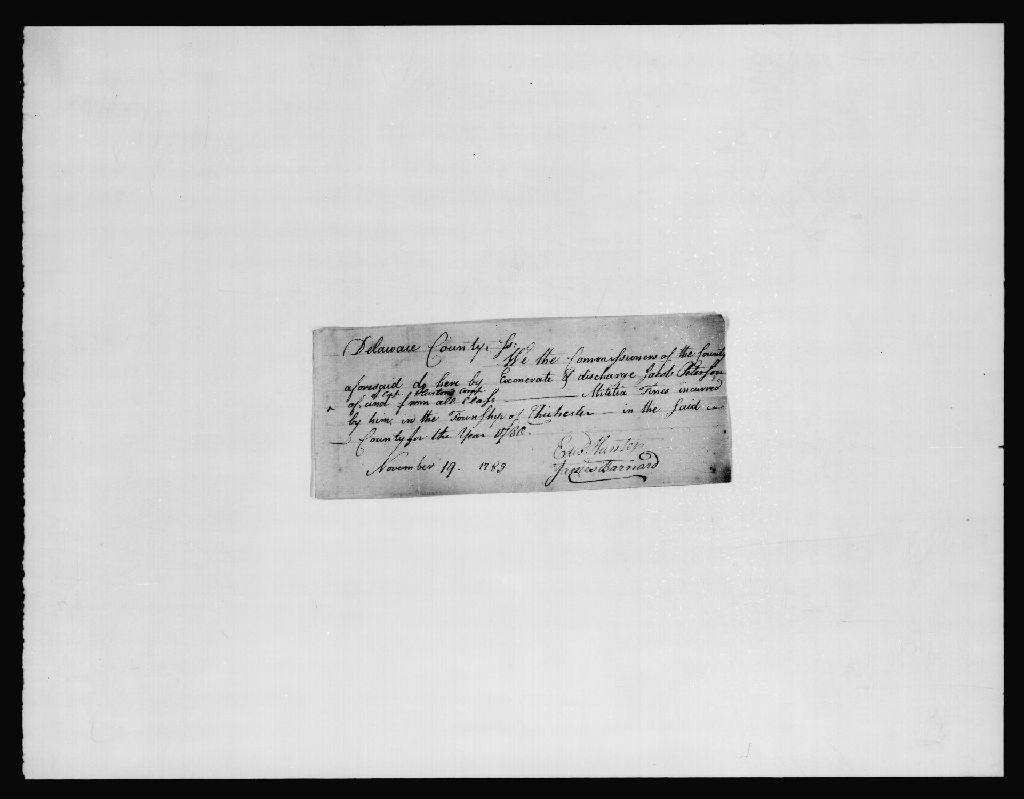 Delaware County Ss.
We the Commissioners of the County
aforesaid do here by Exonerate & discharge Jacob Peterson
of Capt. Comp.
of, and from all Militia Fines incurred
by him, in the Township of Chichester in the Said
County for the Year
November 19. 1789
Hunter
James Barnard